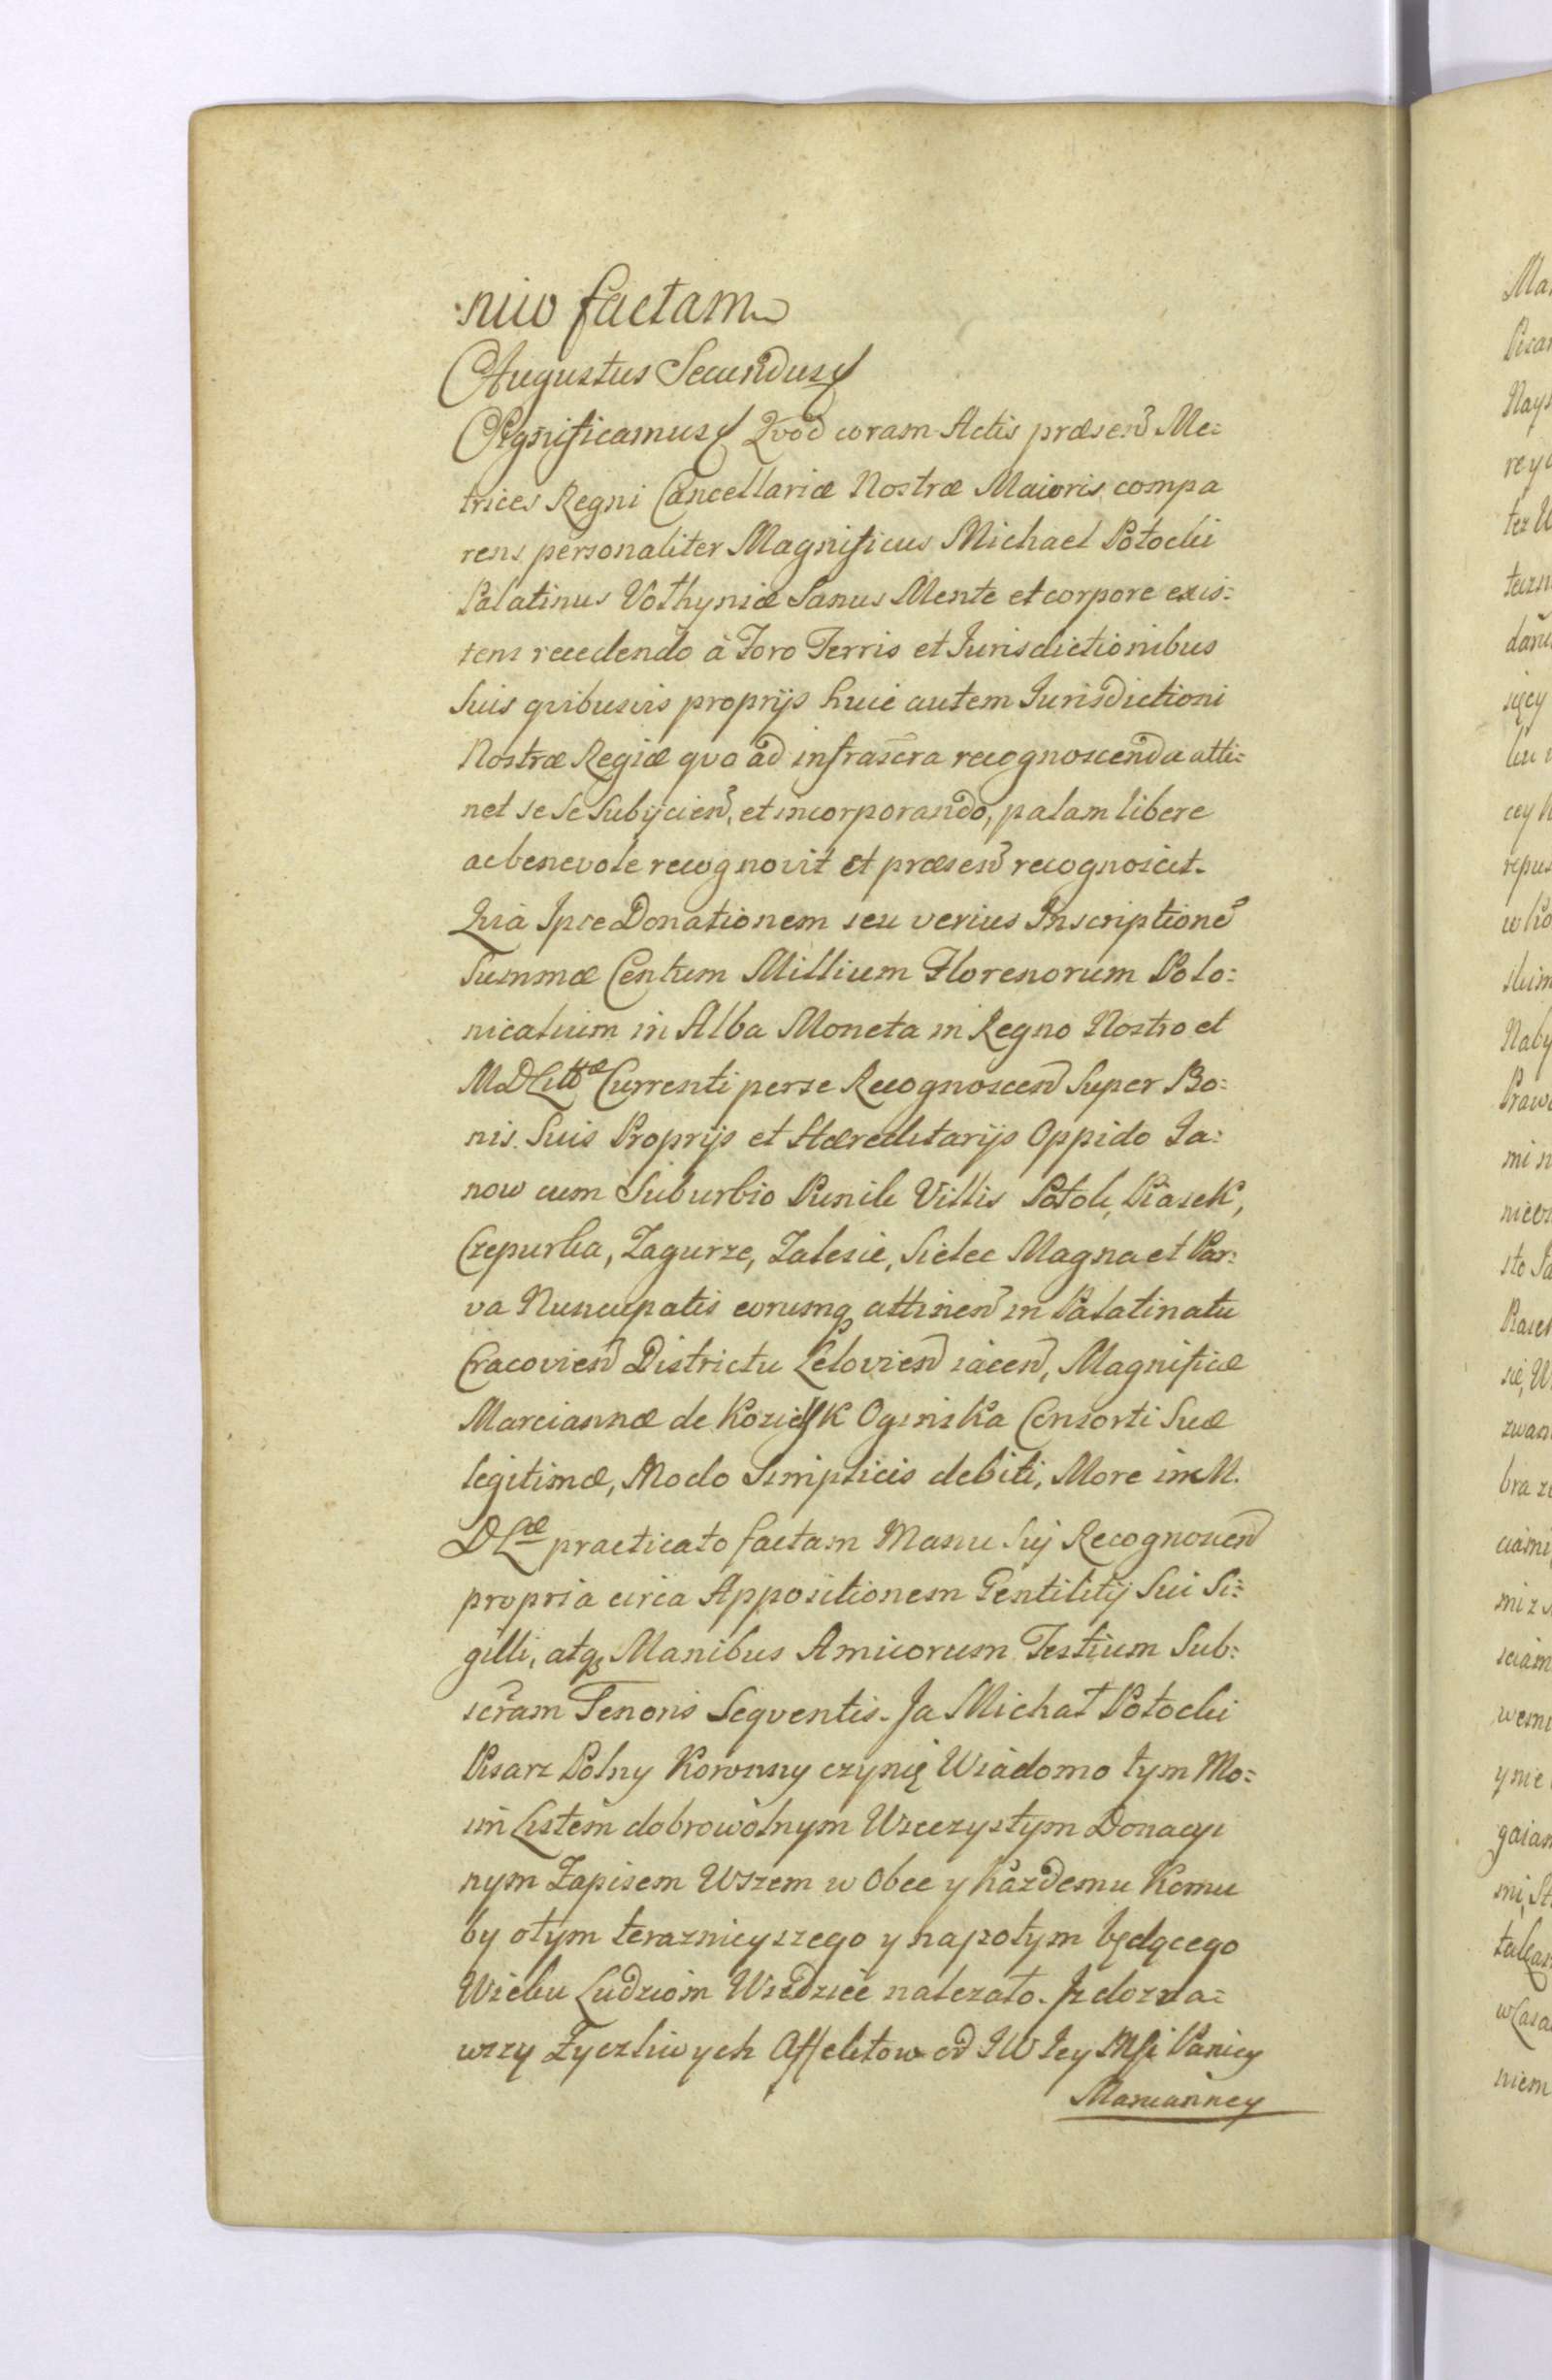 nio factam
Augustus Secundus
Significamus Qvod coram Actis præsen Me:
trices Regni Cancellariæ Nostræ Maioris compa
rens personaliter Magnificus Michael Potocki
Palatinus Volhyniæ Sanus Mente et corpore exis:
tens recedendo à Foro Terris et Jurisdictionibus
Suis qvibusvis proprijs huic autem Jurisdictioni
Nostræ Regiæ qvo ad infrascra recognoscenda atti:
net se se Subijcien, et incorporando, palam libere
ac benevole recognovit et præsen recognoscit.
Qvia Ipse Donationem seu verius Inscriptione
Summæ Centum Millium Florenorum Polo:
nicalium in Alba Moneta in Regno Nostro et
MDLittæ Currenti per se Recognoscen Super Bo:
nis Suis Proprijs et Hæreditarijs Oppido Ja:
now cum Suburbio Ponik Villis Potok, Piasek,
Czepurka, Zagurze, Zalesie, Sielec Magna et Par:
va Nuncupatis eorumq attinen in Palatinatu
Cracovien Districtu Lelovien iacen, Magnificæ
Marciannæ de Kozielsk Oginska Consorti Suæ
legitimæ, Modo Simplicis debiti, More in M.
DLæ practicato factam Manu Sij Recognoscen
propria circa Appositionem Gentilitij Sui Si:
gilli, atq Manibus Amicorum Testium Sub:
scram Tenoris Seqventis. Ja Michał Potocki
Pisarz Polny Koronny czynię Wiadomo tym Mo:
im Listem dobrowolnym Wieczystym Donacyi
nym Zapisem Wszem w Obec y każdemu Komu
by otym teraznieyszego y napotym będącego
Wieku Ludziom Wiedziec nalezało. Iz dozna:
wszy Zyczliwych Affektow od JW Jey Msi Paniey
Marcianney
Ma
Pisar
Nays
rey
tez U
ten
siącey
cey
repu
w ko
slim
Naby
Prawe
mi n
sto Ja
Piasek
sie, W
zwan
bra z
ciami
mi z
sciam
wemi
y nie
gaian
mi, St
niem